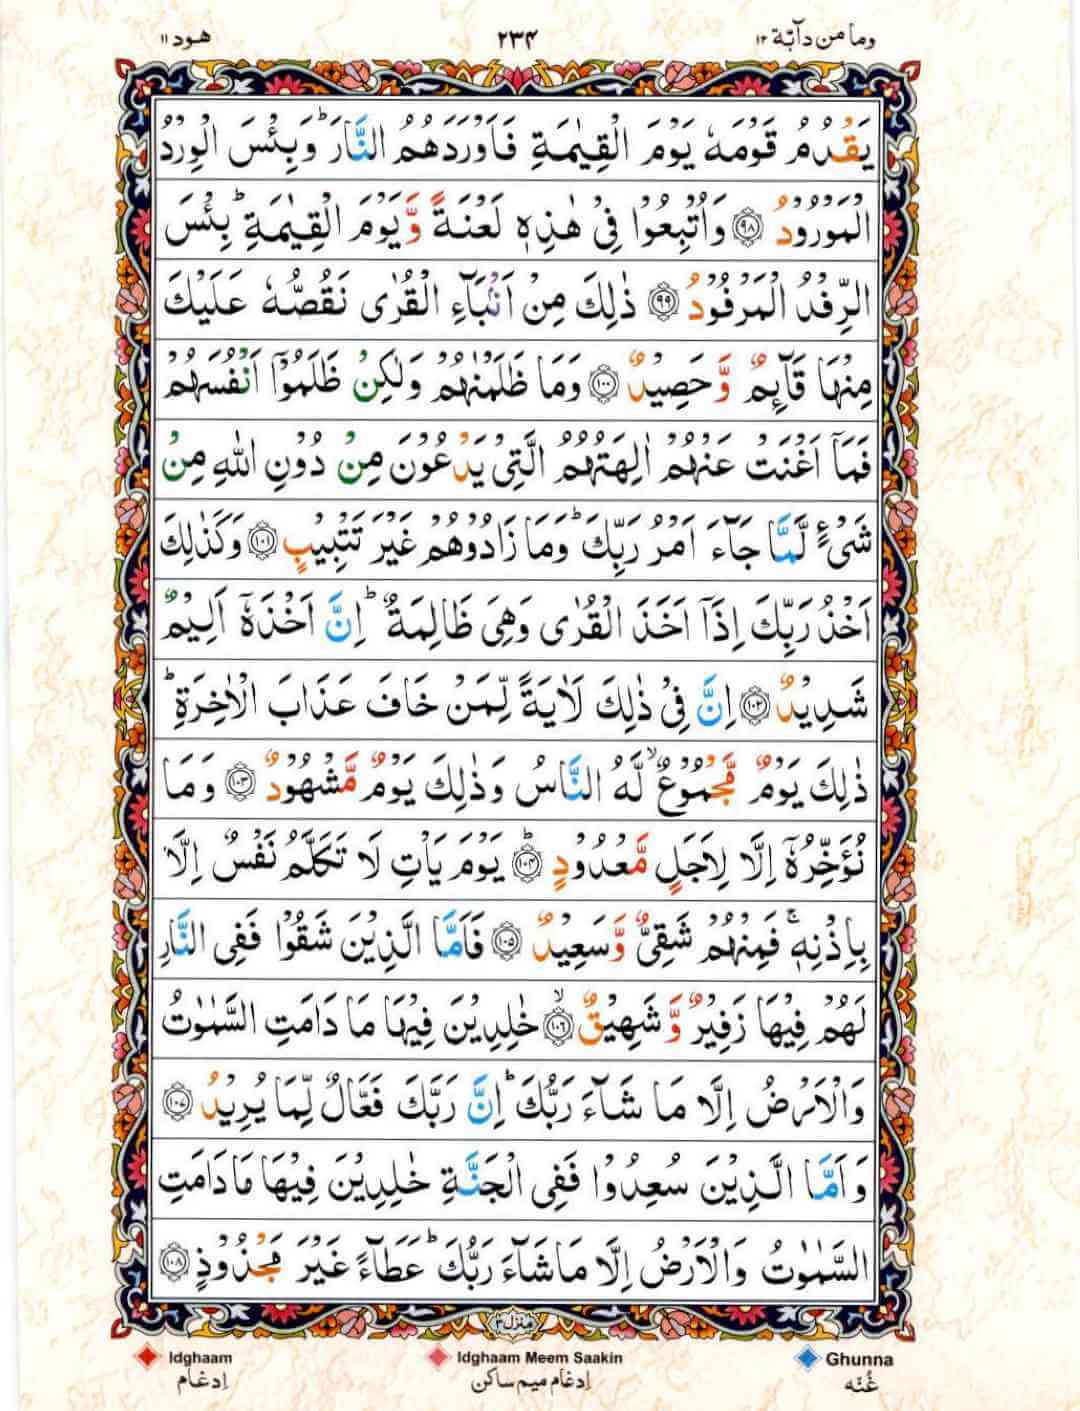 وما من دآبّة ۱۲
۲۳۴
هود ۱۱
يَقْدُمُ قَوْمَهٗ يَوْمَ الْقِيٰمَةِ فَاَوْرَدَهُمُ النَّارَ ؕ وَبِئْسَ الْوِرْدُ
الْمَوْرُوْدُ ﴿۹۸﴾ وَاُتْبِعُوْا فِيْ هٰذِهٖ لَعْنَةً وَّيَوْمَ الْقِيٰمَةِ ؕ بِئْسَ
الرِّفْدُ الْمَرْفُوْدُ ﴿۹۹﴾ ذٰلِكَ مِنْ اَنْۢبَآءِ الْقُرٰى نَقُصُّهٗ عَلَيْكَ
مِنْهَا قَآئِمٌ وَّحَصِيْدٌ ﴿۱۰۰﴾ وَمَا ظَلَمْنٰهُمْ وَلٰكِنْ ظَلَمُوْۤا اَنْفُسَهُمْ
فَمَاۤ اَغْنَتْ عَنْهُمْ اٰلِهَتُهُمُ الَّتِيْ يَدْعُوْنَ مِنْ دُوْنِ اللّٰهِ مِنْ
شَيْءٍ لَّمَّا جَآءَ اَمْرُ رَبِّكَ ؕ وَمَا زَادُوْهُمْ غَيْرَ تَتْبِيْبٍ ﴿۱۰۱﴾ وَكَذٰلِكَ
اَخْذُ رَبِّكَ اِذَاۤ اَخَذَ الْقُرٰى وَهِيَ ظَالِمَةٌ ؕ اِنَّ اَخْذَهٗۤ اَلِيْمٌ
شَدِيْدٌ ﴿۱۰۲﴾ اِنَّ فِيْ ذٰلِكَ لَاٰيَةً لِّمَنْ خَافَ عَذَابَ الْاٰخِرَةِ ؕ
ذٰلِكَ يَوْمٌ مَّجْمُوْعٌ ۙ لَّهُ النَّاسُ وَذٰلِكَ يَوْمٌ مَّشْهُوْدٌ ﴿۱۰۳﴾ وَمَا
نُؤَخِّرُهٗۤ اِلَّا لِاَجَلٍ مَّعْدُوْدٍ ﴿۱۰۴﴾ ؕ يَوْمَ يَاْتِ لَا تَكَلَّمُ نَفْسٌ اِلَّا
بِاِذْنِهٖ ۚ فَمِنْهُمْ شَقِيٌّ وَّسَعِيْدٌ ﴿۱۰۵﴾ فَاَمَّا الَّذِيْنَ شَقُوْا فَفِي النَّارِ
لَهُمْ فِيْهَا زَفِيْرٌ وَّشَهِيْقٌ ﴿۱۰۶﴾ ۙ خٰلِدِيْنَ فِيْهَا مَا دَامَتِ السَّمٰوٰتُ
وَالْاَرْضُ اِلَّا مَا شَآءَ رَبُّكَ ؕ اِنَّ رَبَّكَ فَعَّالٌ لِّمَا يُرِيْدُ ﴿۱۰۷﴾
وَاَمَّا الَّذِيْنَ سُعِدُوْا فَفِي الْجَنَّةِ خٰلِدِيْنَ فِيْهَا مَا دَامَتِ
السَّمٰوٰتُ وَالْاَرْضُ اِلَّا مَا شَآءَ رَبُّكَ ؕ عَطَآءً غَيْرَ مَجْذُوْذٍ ﴿۱۰۸﴾
منزل ۳
Idghaam
ادغام
Idghaam Meem Saakin
ادغام میم ساکن
Ghunna
غُنّه